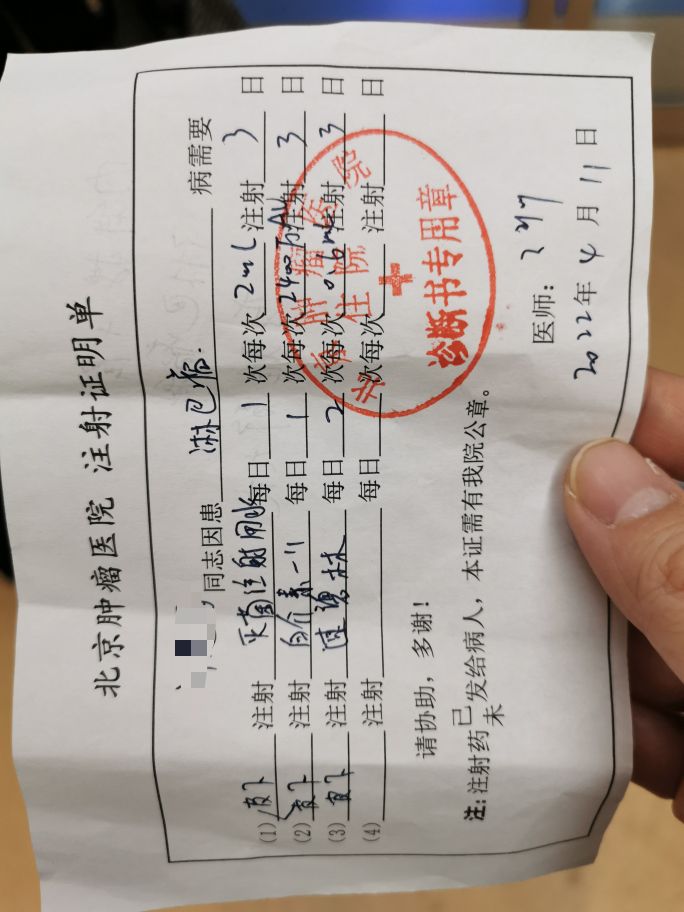 北京肿瘤医院 注射证明单
同志因患 淋巴瘤. 病需要
(1) 皮下 注射 灭菌注射用水 每日 1 次每次 2ml 注射 3 日
(2) 皮下 注射 白介素-11 每日 1 次每次 注射 3 日
(3) 皮下 注射 每日 2 次每次 注射 3 日
(4) 注射 每日 次每次 注射 日
请协助,多谢!
注:注射药已未发给病人,本证需有我院公章。
北京肿瘤医院
住院
诊断书专用章
医师:
2022年 4 月 11 日